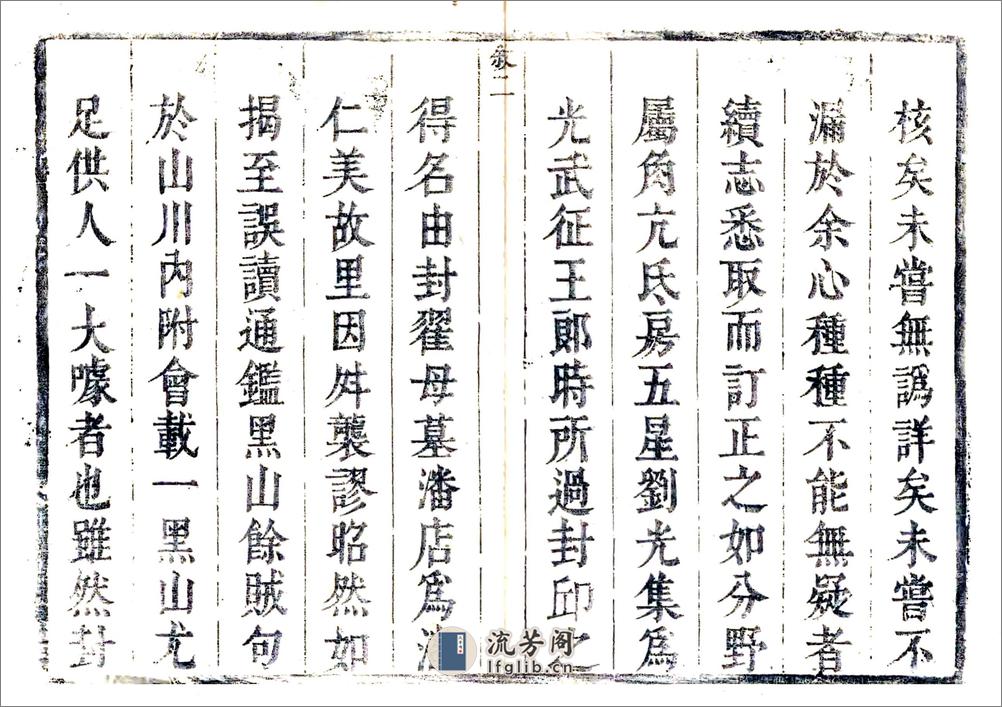 核矣未嘗無譌詳矣未嘗不
漏於余心種種不能無疑者
續志悉取而訂正之如分野
屬角亢氐房五星劉光集爲
光武征王郎時所過封邱之
敘二
得名由封翟母墓潘店爲潘
仁美故里因舛襲謬昭然如
揭至誤讀通鑑黑山餘賊句
於山川內附會載一黑山尤
足供人一大噱者也雖然封
流芳阁
lfglib.cn